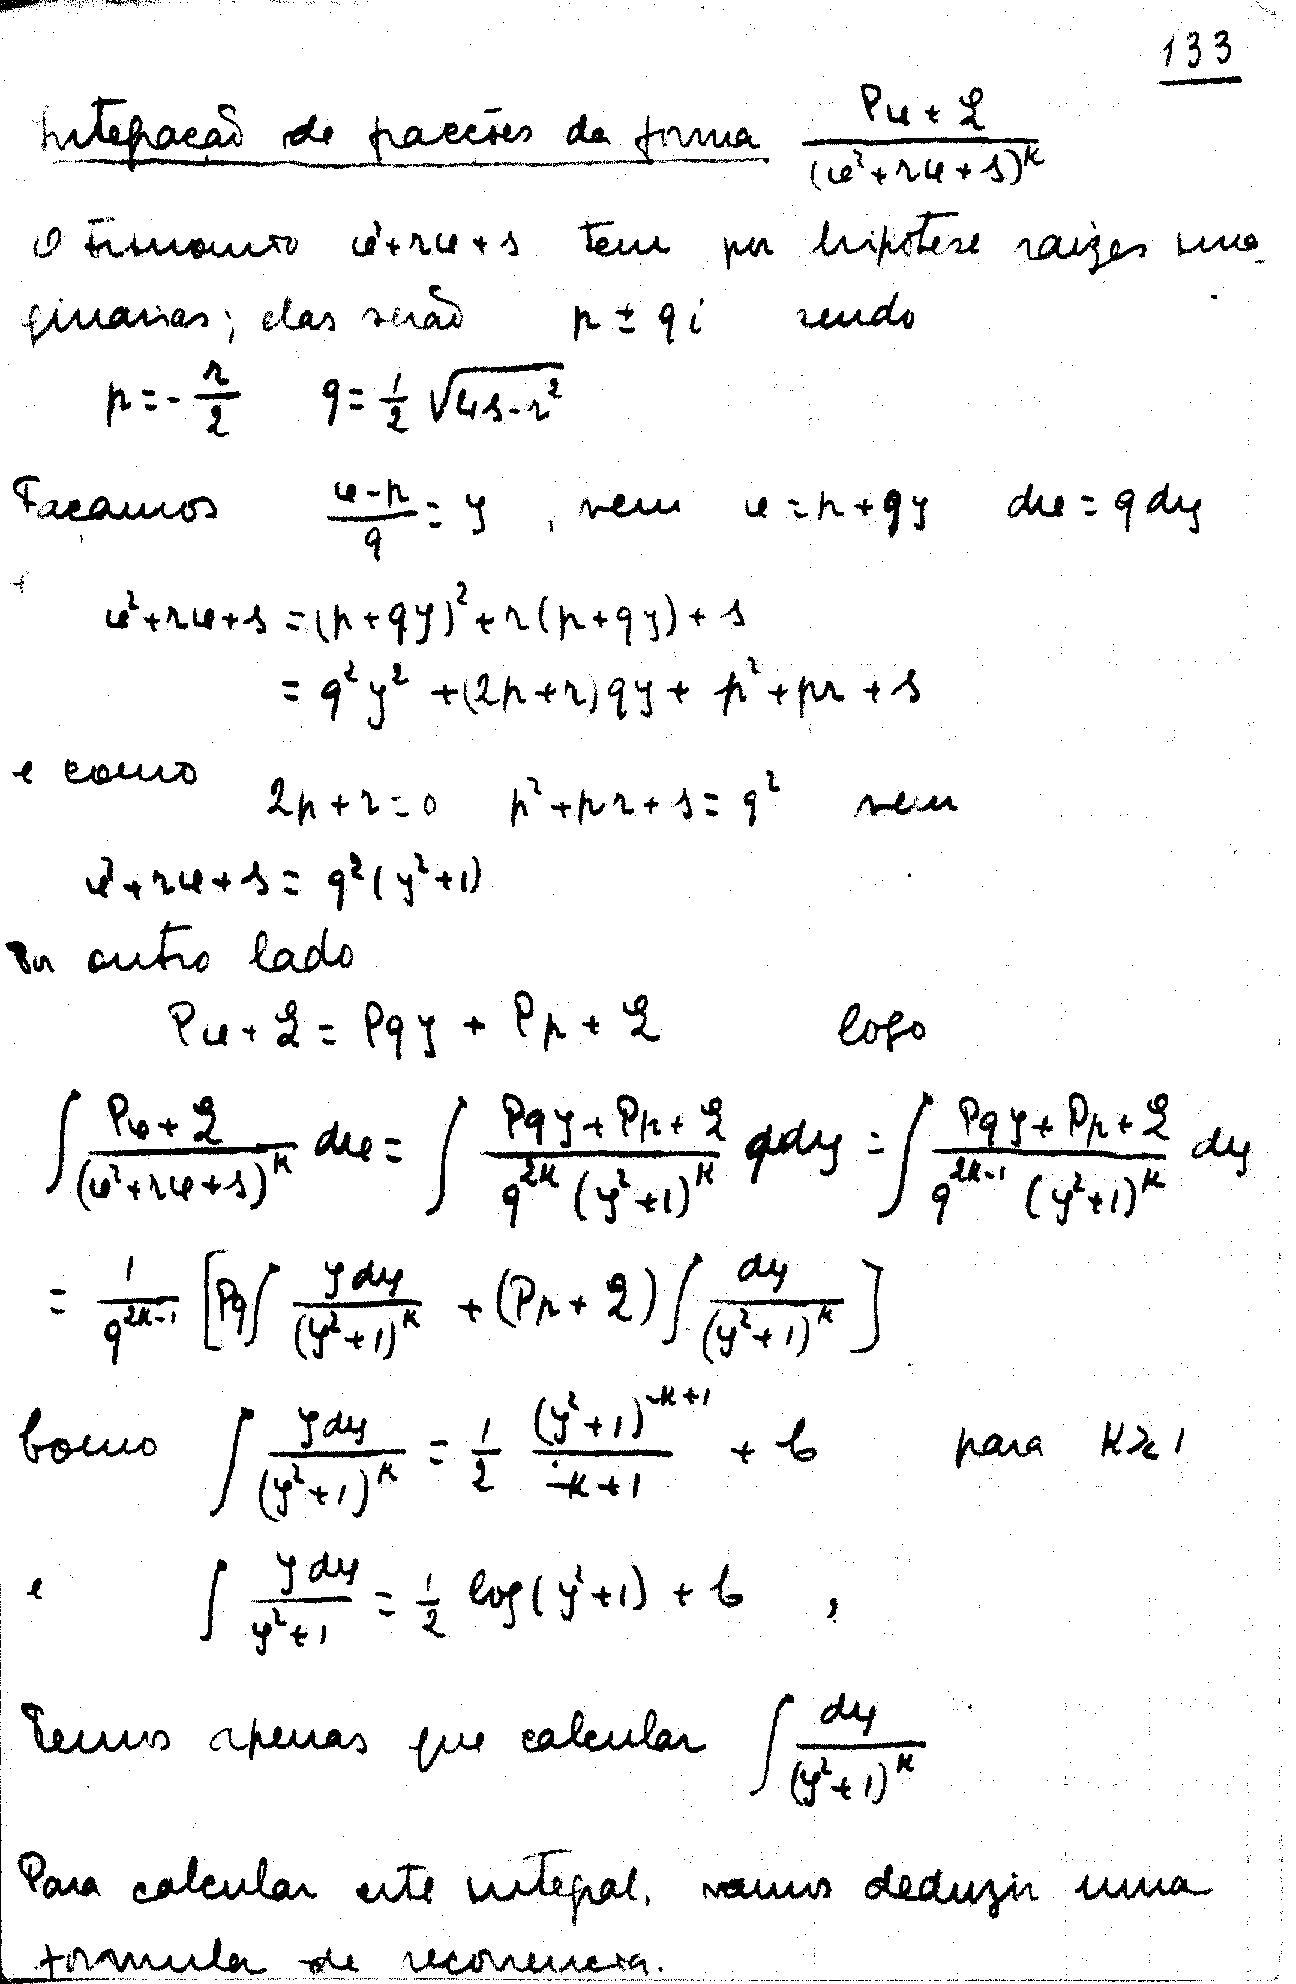 133
Integração de fracções da forma \frac{Pu+Q}{(u²+ru+s)^k}
O trinomio u²+ru+s tem por hipótese raizes ima-
ginarias; elas serão p ± qi sendo
p = -\frac{r}{2} q = \frac{1}{2} \sqrt{4s-r²}
Façamos \frac{u-p}{q} = y , vem u = p+qy du = q dy
u²+ru+s = (p+qy)²+r(p+qy)+s
= q²y² +(2p+r)qy + p²+pr+s
e como 2p+r=0 p²+pr+s=q² vem
u²+ru+s = q²(y²+1)
Por outro lado
Pu+Q = Pqy + Pp + Q logo
∫ \frac{Pu+Q}{(u²+ru+s)^k} du = ∫ \frac{Pqy+Pp+Q}{q^{2k}(y²+1)^k} qdy = ∫ \frac{Pqy+Pp+Q}{q^{2k-1}(y²+1)^k} dy
= \frac{1}{q^{2k-1}} [Pq∫ \frac{ydy}{(y²+1)^k} + (Pp+Q)∫ \frac{dy}{(y²+1)^k}]
Como ∫ \frac{ydy}{(y²+1)^k} = \frac{1}{2} \frac{(y²+1)^{-k+1}}{-k+1} + C para k>1
e ∫ \frac{ydy}{y²+1} = \frac{1}{2} log(y²+1) + C ,
Temos apenas que calcular ∫ \frac{dy}{(y²+1)^k}
Para calcular este integral, vamos deduzir uma
formula de recorrencia.